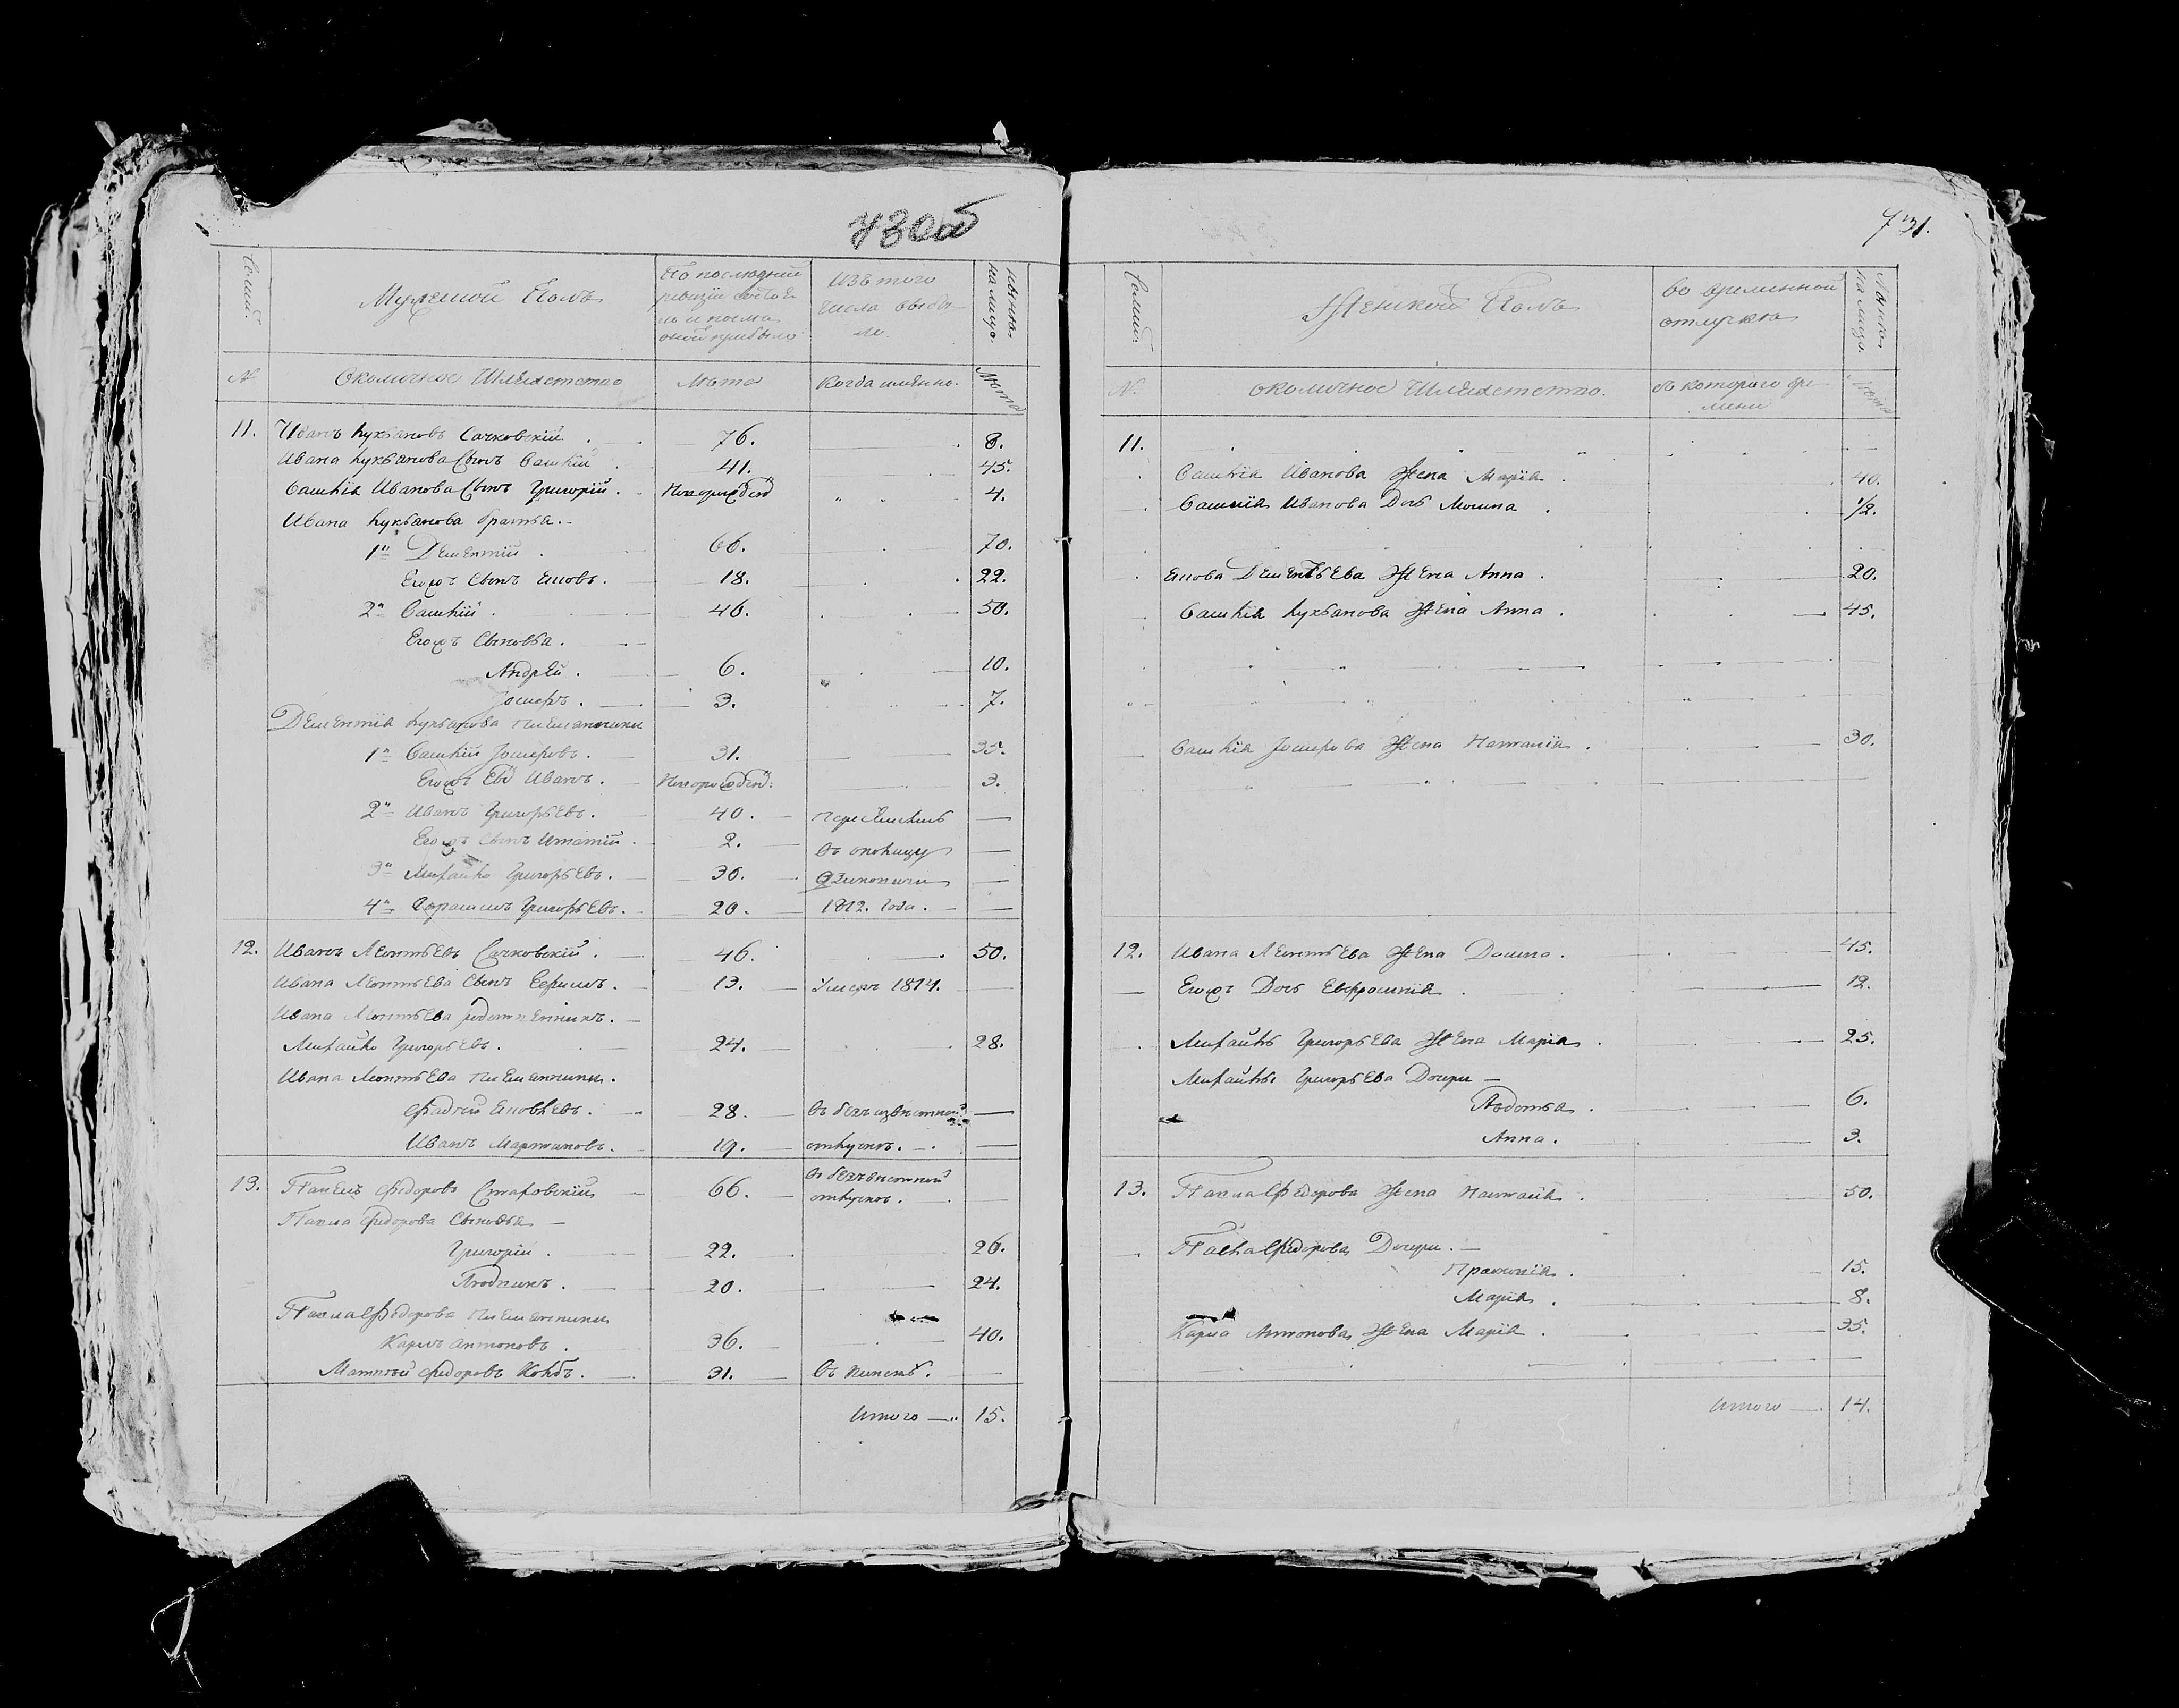 730об
Семьи.
Мужеской Полъ
По последней
ревизіи состоя
ло и после
оной прибыло
Изъ того
числа выбы-
ло.
Ныне на лицо.
№
Околичное Шляхетство
Лета
Когда именно.
Лета
11. Иванъ Лукьяновъ Сачковскій . 76. 8.
Ивана Лукьянова Сынъ Василій 41. 45.
Василія Иванова Сынъ Григорій . Новорожден 4.
Ивана Лукьянова братья.
1й Дементій . 66. 70.
Его Сынъ Яковъ. 18. 22.
2й Василій . 46. 50.
Его Сыновья.
Андрей . 6. 10.
Іосифъ . 3. 7.
Дементія Лукьянова племянники
1й Василій Іосифовъ. 31. 35.
Иванъ . Новорожден. 3.
2й Иванъ Григорьевъ. 40. —
Его Сынъ Игнатій . 2. въ околицу —
3й Михайло Григорьевъ. 36. —
4й Герасимъ Григорьевъ. 20. 1812. Года. —
12. Иванъ Леонтьевъ Сачковскій . 46. 50.
Ивана Леонтьева Сынъ Ефимъ. 13. Умеръ 1814. —
Ивана Леонтьева
Михайло Григорьевъ. 24. 28.
Ивана Леонтьева племянники.
Фадей Яковлевъ. 28. въ безъизвестной —
Иванъ Мартиновъ. 19. отлучке. —
13. Павелъ Федоровъ 66. въ безвестной
отлучке. —
Павла Федорова Сыновья —
Григорій . 22. 26.
Людвикъ . 20. 24.
Павла Федорова племянники
Карлъ Антоновъ . 36. 40.
Матвей Федоровъ 31. —
Итого — 15.
731.
Семьи.
Женской Полъ
Во временной
отлучке
Ныне на лицо.
№.
Околичное Шляхетство.
съ котораго вре-
мени
Лета
11.
Василія Иванова Жена Марія . 40.
Василія Иванова Дочь . 1/2.
Якова Дементьева Жена Анна . 20.
Василія Лукьянова Жена Анна . 45.
Василія Іосифова Жена Наталія . 30.
12. Ивана Леонтьева Жена . 45.
Дочь Евфросинія . 12.
Михайлы Григорьева Жена Марія . 25.
Михайлы Григорьева Дочери —
6.
Анна . 3.
13. Павла Федорова Жена . 50.
Павла Федорова Дочери. —
15.
Марія . 8.
Карла Антонова Жена Марія . 35.
Итого — 14.